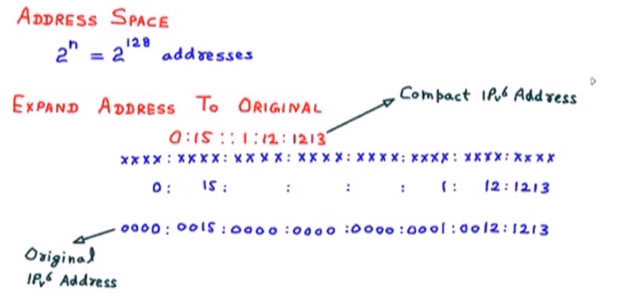 ADDRESS SPACE
2^n = 2^128 addresses
EXPAND ADDRESS TO ORIGINAL
Compact IPv6 Address
0:15::1:12:1213
xxxx:xxxx:xxxx:xxxx:xxxx:xxxx:xxxx:xxxx
0: 15: : : : 1: 12:1213
0000:0015:0000:0000:0000:0001:0012:1213
Original
IPv6 Address